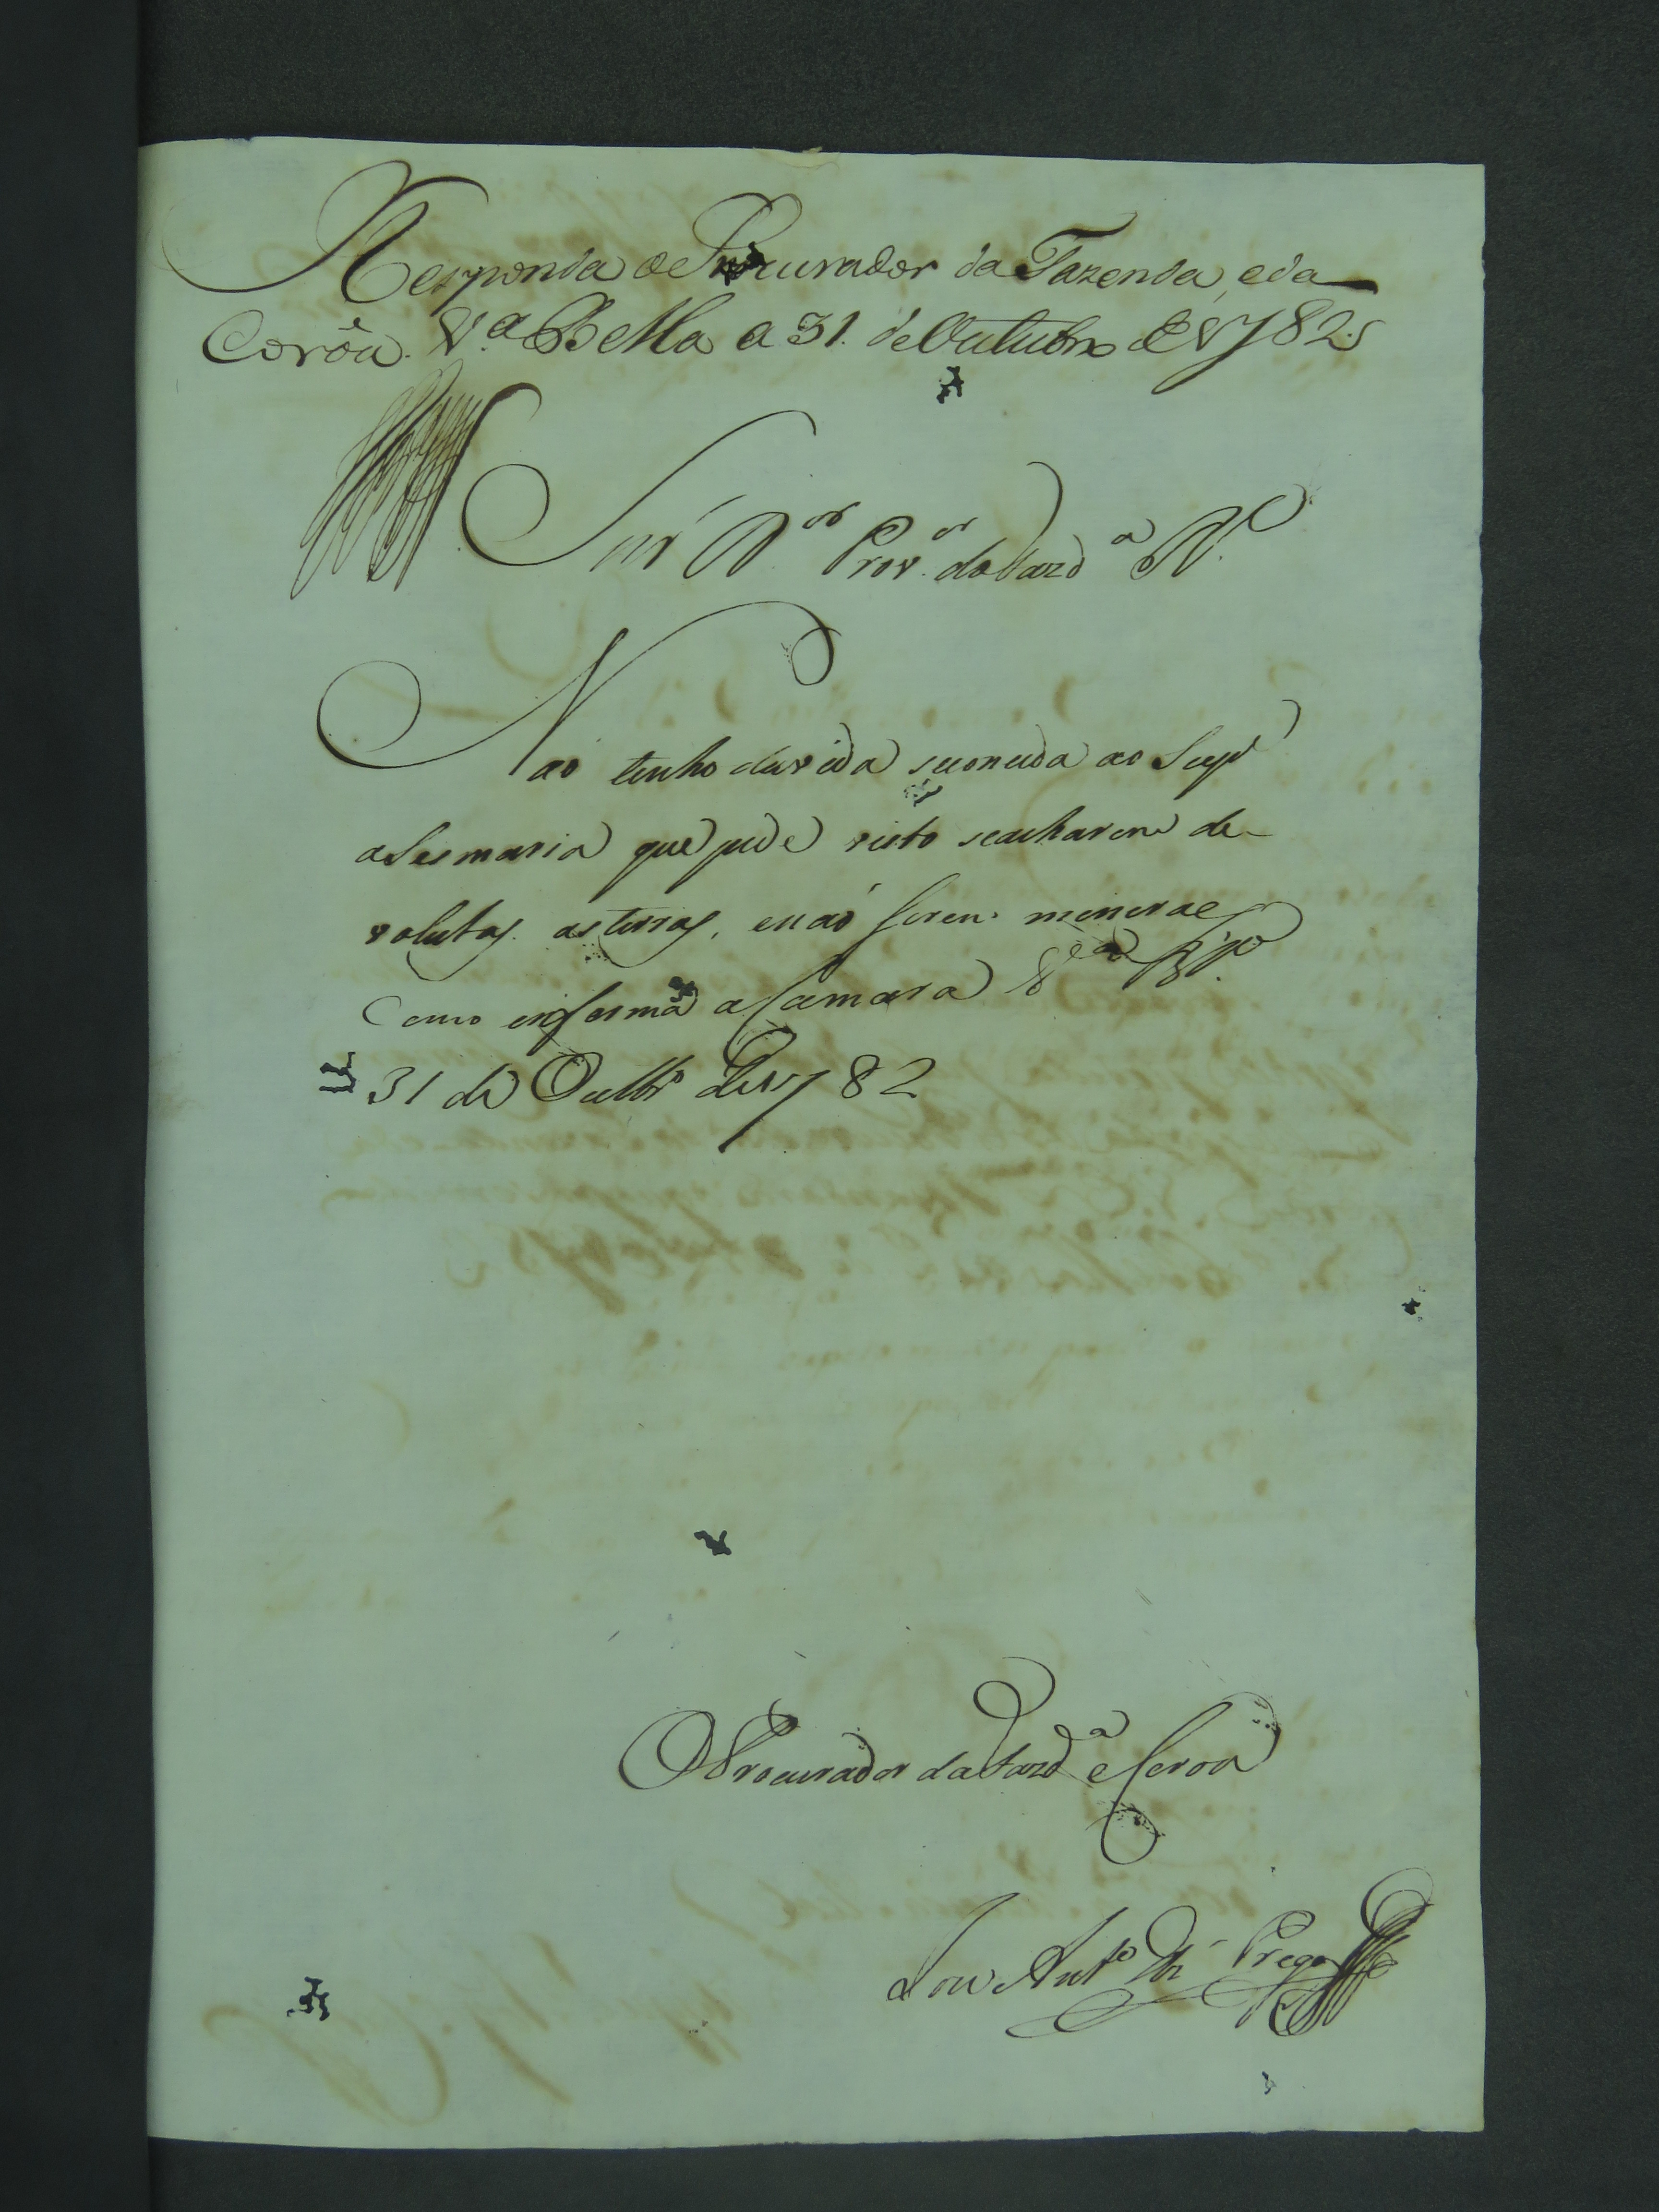 Responda o Procurador da Fazenda, e da
Corôa. V.ª Bella a 31. de Outubro de 1782.
Snŕ D.or Prov.or da Fazd.ª R.
Naó tenho duvida se conceda ao Supt
a Sesmaria que pede visto se acharem de-
volutas as terras, e naó serem mineraes
Como informa a Camara V.ª B.ª
31 de Outbrº de 1782
O Procurador da Fazd.ª e Coroa
Antº Prego